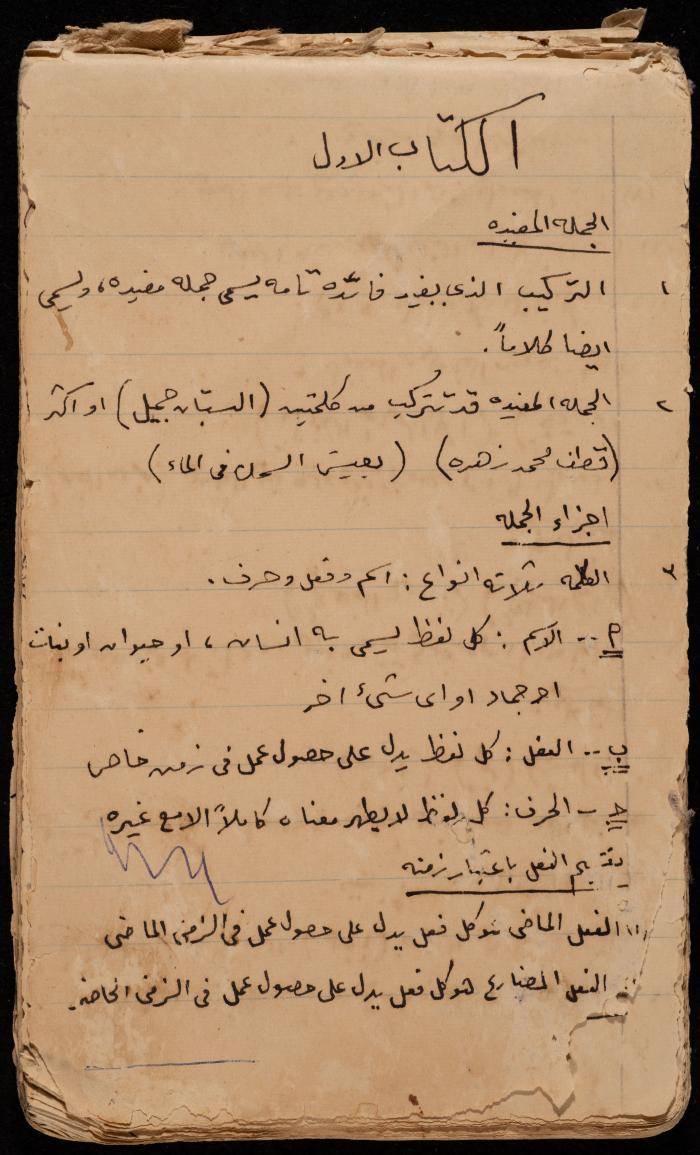 الكتاب الاول
الجمله المفيده
١ التركيب الذى يفيد فائده تامه يسمى جمله مفيده، ويسمى
ايضا كلاماً.
٢ الجمله المفيده قد تتركب من كلمتين (البستان جميل) او اكثر
(قطف محمد زهره) (يعيش السمك فى الماء)
اجزاء الجمله
٣ الكلمه ثلاثه انواع: اسم وفعل وحرف.
أ -- الاسم: كل لفظ يسمى به انسان، او حيوان او نبات
او جماد او اى شىء اخر
ب -- الفعل: كل لفظ يدل على حصول عمل فى زمن خاص
ج - الحرف: كل لفظ لا يظهر معناه كاملاً الا مع غيره
تقسيم الفعل باعتبار زمنه
(١) الفعل الماضى هو كل فعل يدل على حصول عمل فى الزمن الماضى
الفعل المضارع هو كل فعل يدل على حصول عمل فى الزمن الحاضر.